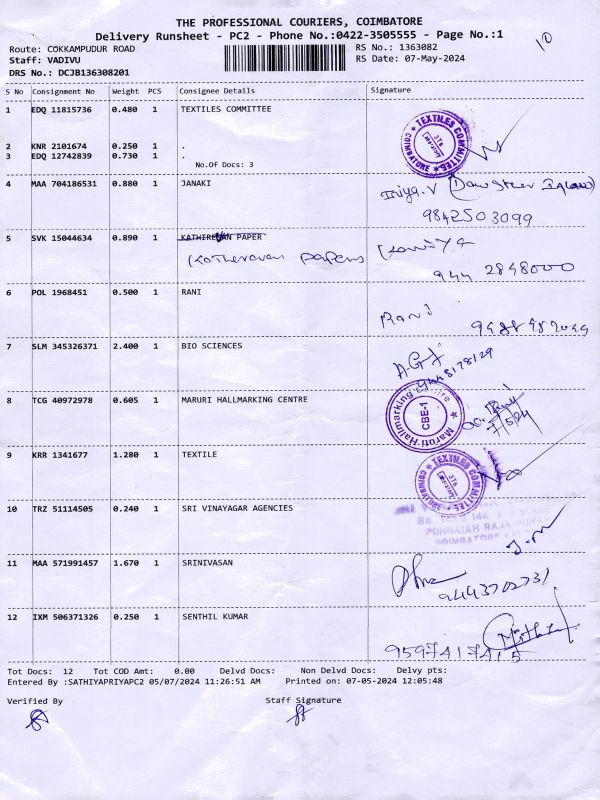 THE PROFESSIONAL COURIERS, COIMBATORE
Delivery Runsheet - PC2 - Phone No.:0422-3505555 - Page No.:1
10
Route: COKKAMPUDUR ROAD
RS No.: 1363082
Staff: VADIVU
RS Date: 07-May-2024
DRS No.: DCJB136308201
S No Consignment No Weight PCS Consignee Details Signature
1 EDQ 11815736 0.480 1 TEXTILES COMMITTEE
TEXTILES COMMITTEE
COIMBATORE
2 KNR 2101674 0.250 1 .
3 EDQ 12742839 0.730 1 .
No.Of Docs: 3
4 MAA 704186531 0.880 1 JANAKI
9842503099
5 SVK 15044634 0.890 1 KATHIREVAN PAPER
Katheravan papers
944 2848000
6 POL 1968451 0.500 1 RANI
Rani
7 SLM 345326371 2.400 1 BIO SCIENCES
8 TCG 40972978 0.605 1 MARURI HALLMARKING CENTRE
Maroti Hallmarking Centre
CBE-1
7/5/24
9 KRR 1341677 1.280 1 TEXTILE
TEXTILES COMMITTEE
COIMBATORE
10 TRZ 51114505 0.240 1 SRI VINAYAGAR AGENCIES
PONNAIAH RAJA PURAM
COIMBATORE
11 MAA 571991457 1.670 1 SRINIVASAN
9443702731
12 IXM 506371326 0.250 1 SENTHIL KUMAR
9597417415
Tot Docs: 12 Tot COD Amt: 0.00 Delvd Docs: Non Delvd Docs: Delvy pts:
Entered By :SATHIYAPRIYAPC2 05/07/2024 11:26:51 AM Printed on: 07-05-2024 12:05:48
Verified By Staff Signature